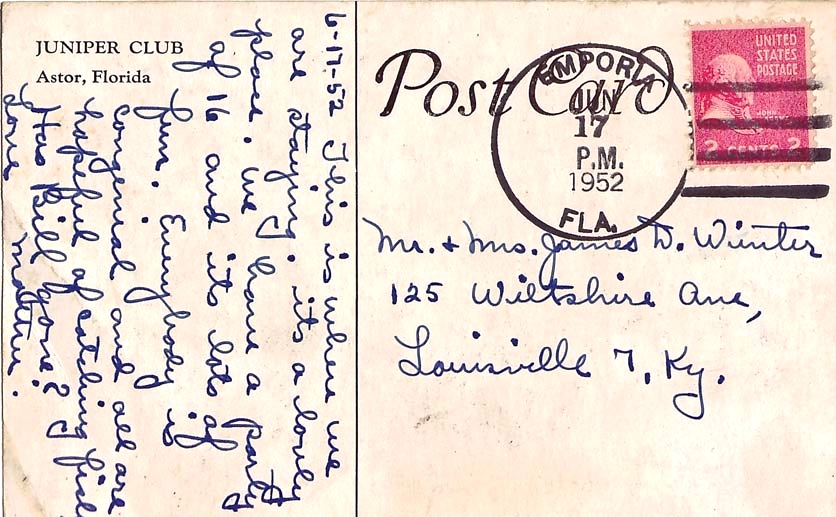 JUNIPER CLUB
Astor, Florida
6-17-52 This is where we
are staying. its a lovely
place. We have a party
of 16 and its lots of
fun. Everybody is
congenial and all are
hopeful of catching fish
Has Bill gone?
Love
Post Card
EMPORIA
JUN
17
P.M.
1952
FLA.
UNITED
STATES
POSTAGE
JOHN
2 CENTS 2
Mr. & Mrs. James D. Wunter
125 Wiltshire Ave,
Louisville 7, Ky.